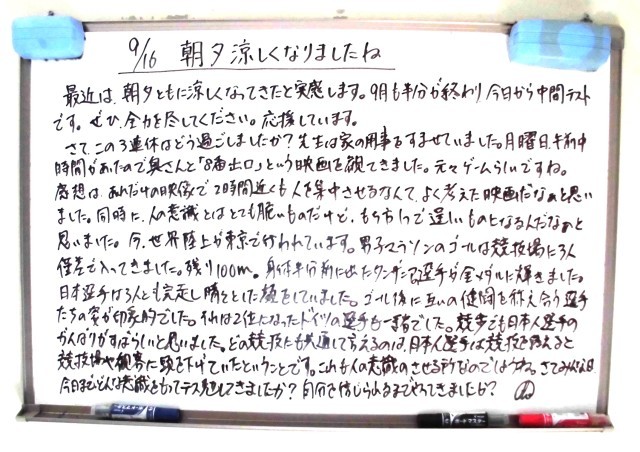 9/16 朝夕涼しくなりましたね
最近は、朝夕ともに涼しくなってきたと実感します。9月も半分が終わり今日から中間テスト
です。ぜひ、全力を尽してください。応援しています。
さて、この3連休はどう過ごしましたか?先生は家の用事をすませていました。月曜日、午前中
時間があったので奥さんと「8番出口」という映画を観てきました。元々ゲームらしいですね。
感想は、あれだけの映像で2時間近くも人を集中させるなんて、よく考えた映画だなぁと思い
ました。同時に、人の意識とはとても脆いものだけど、もち方1つで逞しいものとなるんだなぁと
思いました。今、世界陸上が東京で行われています。男子マラソンのゴールは競技場に3人
僅差で入ってきました。残り100m。身体半分前に出たタンザニア選手が金メダルに輝きました。
日本選手は3人とも完走し晴々とした顔をしていました。ゴール後に互いの健闘を称え合う選手
たちの姿が印象的でした。それは2位になったドイツの選手も一緒でした。競歩でも日本人選手の
がんばりがすばらしいと思いました。どの競技にも共通して言えるのは、日本人選手は競技を終えると
競技場や観客に頭を下げていたということです。これも人の意識のさせる所なのではないか。さてみんなは
今日までどんな意識をもってテス勉してきましたか?自分を信じられるまでやってきましたか?